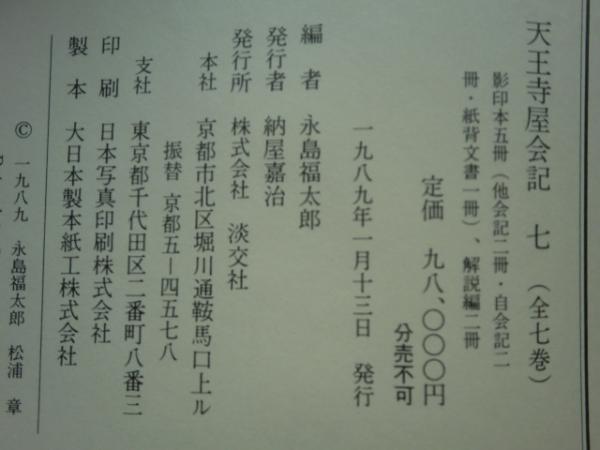 天王寺屋会記 七 （全七巻）
影印本五冊（他会記二冊・自会記二
冊・紙背文書一冊）、解説編二冊
定価 九八、〇〇〇円
分売不可
一九八九年一月十三日 発行
編者 永島福太郎
発行者 納屋嘉治
発行所 株式会社 淡交社
本社 京都市北区堀川通鞍馬口上ル
振替 京都五－四五七八
支社 東京都千代田区二番町八番三
印刷 日本写真印刷株式会社
製本 大日本製本紙工株式会社
© 一九八九 永島福太郎 松浦 章